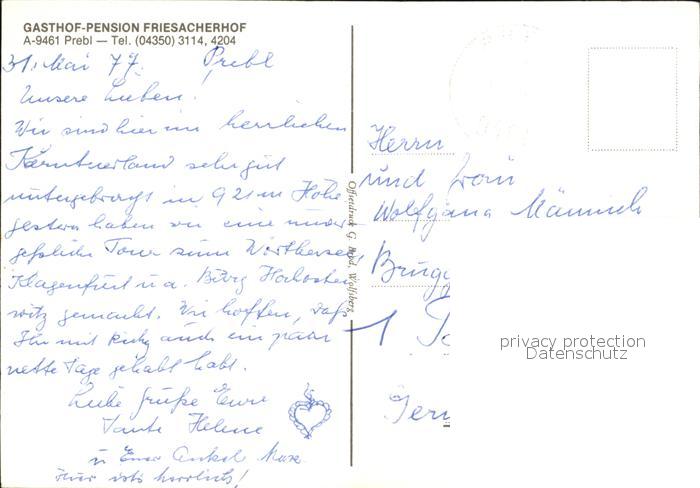 GASTHOF-PENSION FRIESACHERHOF
A-9461 Prebl — Tel. (04350) 3114, 4204
31. Mai 77. Prebl
Unsere Lieben.
Wir sind hier im herrlichen
Kärntnerland sehr gut
untergebracht in 921 m Höhe
gestern haben wir eine unver
geßliche Tour zum Wörthersee
Klagenfurt u a. Burg Hochoster
witz gemacht. Wir hoffen, daß
Ihr mit Ricky auch ein paar
nette Tage gehabt habt.
Liebe Grüße Eure
Tante Helene
u Euer Onkel Max
hier ists herrlich!
Offsetdruck G. Wolfsberg
Herrn
und Frau
Wolfgang
Brügg
1
privacy protection
Datenschutz